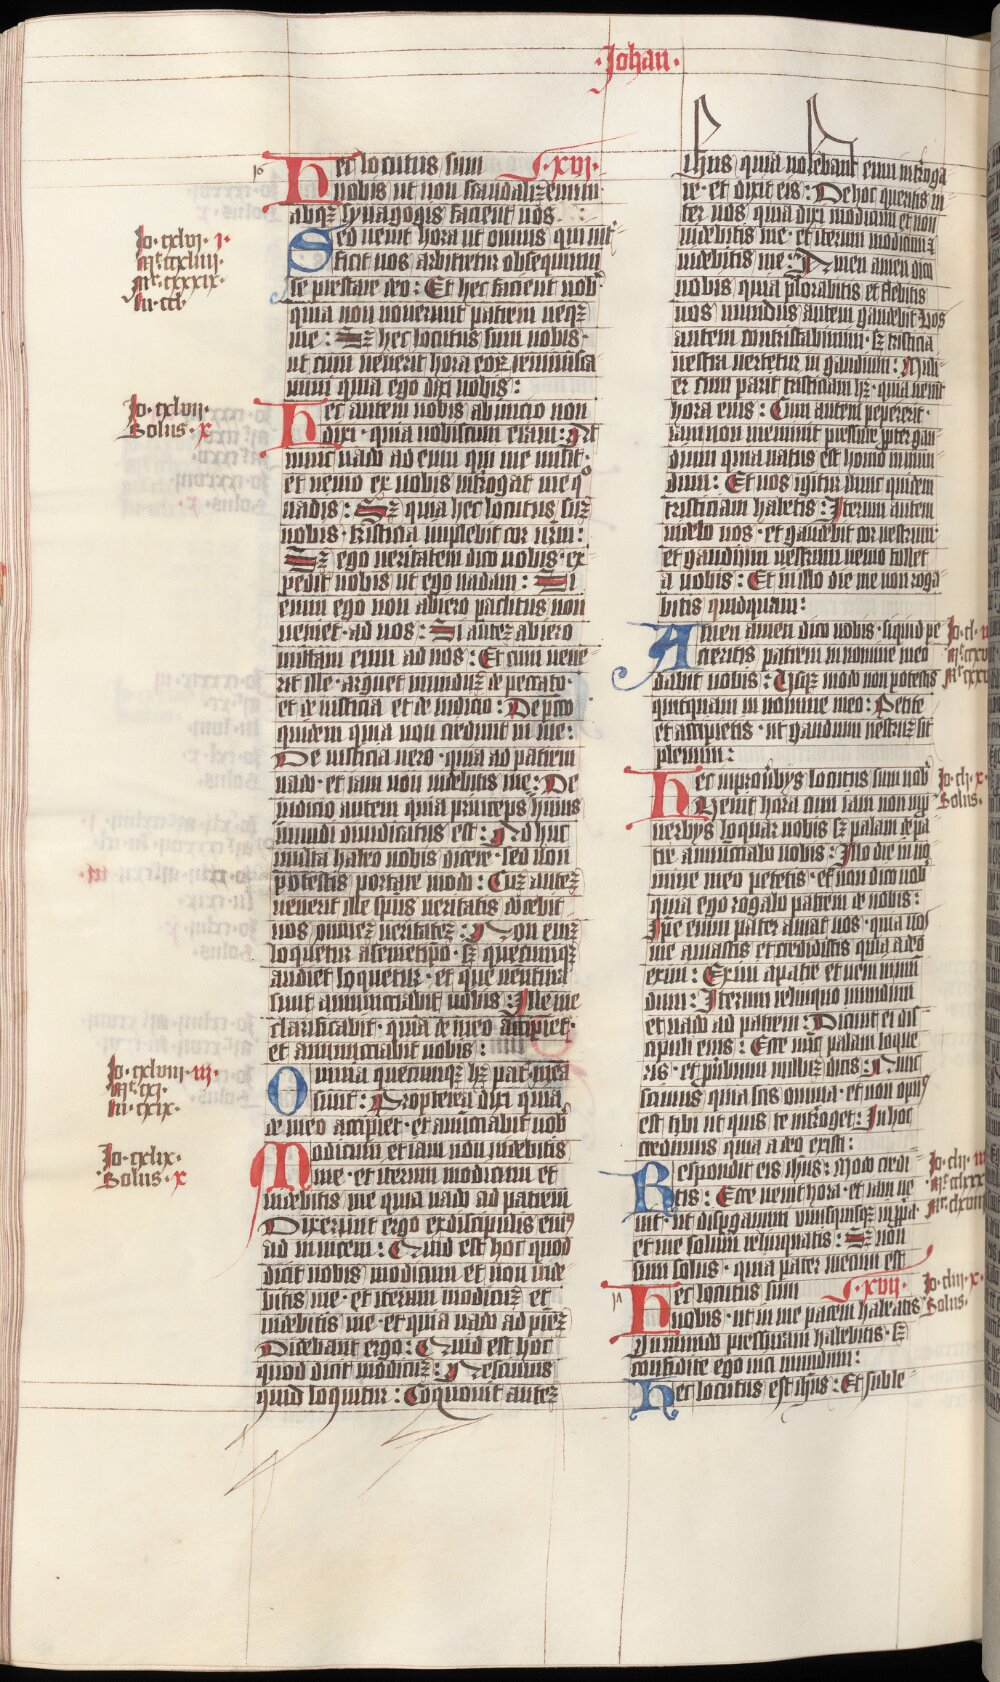 ·Johan·
16
Hec locutus sum ·xvi·
uobis ut non scandalizemini·
absqz synagogis facient uos
Jo·cxlvi· i·
Sed uenit hora ut omnis qui int̾
ficit uos arbitretur obsequium
se prestare deo: Et hec facient nob̾
quia non nouerunt patrem neqz
me: Sz hec locutus sum uobis·
ut cum uenerit hora eoꝝ reminisca
mini quia ego dixi uobis:
Jo·cxlvii·
Solus· x
Hec autem uobis abinicio non
dixi· quia uobiscum eram: At
nunc uado ad eum qui me misit·
et nemo ex uobis int̾rogat me q̊
uadis: Sz quia hec locutus suz
uobis· tristicia impleuit cor ur̄m:
Sz ego ueritatem dico uobis· ex
pedit uobis ut ego uadam: Si
enim ego non abiero paclitus non
ueniet· ad uos: Si autez abiero
mittam eum ad uos: Et cum uene
rit ille· arguet munduz de peccato·
et de iusticia et de iudicio: De pctō
quidem quia non credunt in me:
De iusticia uero· quia ad patrem
uado· et iam non uidebitis me: De
iudicio autem quia princeps huius
mundi iam iudicatus est: Adhuc
multa habeo uobis dicere· sed non
potestis portare modo: Cuz autez
uenerit ille spūs ueritatis docebit
uos omnez ueritatez: Non eniz
loquetur asemetipō· sz quecumqz
audiet loquetur· et que uentura
sunt annunciabit uobis: Ille me
clarificabit· quia de meo accipiet·
et annunciabit uobis:
Jo·cxlviii· iii·
Mt·cxi·
lu·cxix·
Omnia quecunqz hz pat̾ mea
sunt: Propterea dixi quia
de meo accipiet· et annūciabit uob̾
Jo·cxlix·
Solus· x
Modicum et iam non uidebitis
me· et iterum modicum et
uidebitis me quia uado ad patrem
Dixerunt ergo exdiscipulis eius
ad inuicem: Quid est hoc quod
dicit uobis modicum et non uide
bitis me· et iterum modicuz et
uidebitis me· et quia uado ad prez
Dicebant ergo: Quid est hoc
quod dicit modicuz: Nescimus
quid loquitur: Cognouit autez
ihus quia uolebant eum int̾roga
re· et dixit eis: De hoc queritis in
ter uos quia dixi modicum et non
uidebitis me· et iterum modicuz
uidebitis me: Amen amen dico
uobis quia plorabitis et flebitis
uos mundus autem gaudebit Vos
autem contristabimini· sz tristicia
uestra uertetur in gaudium: Muli
er cum parit tristiciam hz· quia uenit
hora eius: Cum autem pepererit·
iam non meminit pressure ꝓpter gau
dium quia natus est homo in mun
dum: Et uos igitur nunc quidem
tristiciam habetis: Iterum autem
uidebo uos· et gaudebit cor uestrum
et gaudium uestrum nemo tollet
a uobis: Et in illo die me non roga
bitis quidquam:
Amen amen dico uobis· siquid pe
tieritis patrem in nomine meo
dabit uobis: Usqz modo non petistis
quitquam in nomine meo: Petite
et accipietis· ut gaudium uestruz sit
plenum:
Jo·cli· x·
Solus·
Hec inprouerbys locutus sum uob̾
Venit hora cum iam non in ꝓ
uerbys loquar uobis sz palam de pa
tre annunciabo uobis: Illo die in no
mine meo petetis· et non dico uob̾
quia ego rogabo patrem de uobis:
Ipe enim pater amat uos· quia uos
me amastis et credidistis quia a deo
exiui: Exiui apatre et ueni in mun
dum: Iterum relinquo mundum
et uado ad patrem: Dicunt ei dis
cipuli eius: Ecce nūc palam loque
ris· et ꝓuerbium nulluz dicis: Nunc
scimus quia scis omnia· et non opus
est tibi ut quis te int̾roget: In hoc
credimus quia a deo existi:
Respondit eis ihus: Modo credi
tis: Ecce uenit hora· et iam ue
nit· ut dispgamini vnusquisqz in ꝓpria·
et me solum relinquatis: Sz non
sum solus· quia pater mecum est
17
Jo·cliii· x·
Solus·
Hec locutus sum ·xvii·
uobis· ut in me pacem habeatis
In mundo pressuram habebitis· sz
confidite ego uici mundum:
Hec locutus est ihus: Et suble